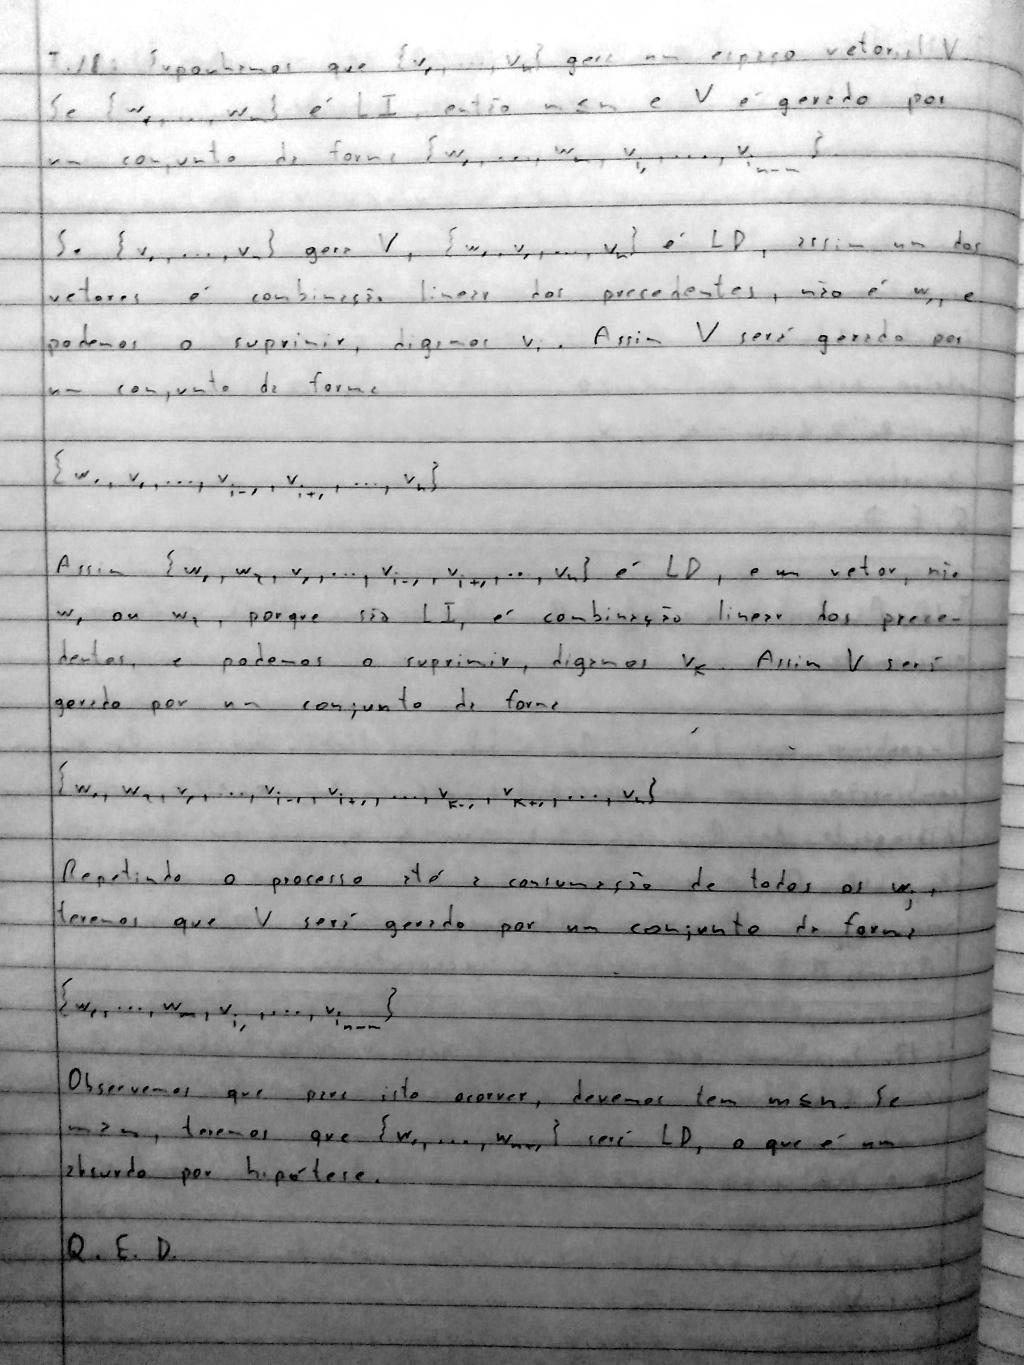 Suponhamos que {v₁, ..., vₙ} gera um espaço vetorial V.
Se {w₁, ..., wₘ} é LI, então m ≤ n e V é gerado por
um conjunto da forma {w₁, ..., wₘ, v_i₁, ..., v_iₙ₋ₘ}.
Se {v₁, ..., vₙ} gera V, {w₁, v₁, ..., vₙ} é LD, assim um dos
vetores é combinação linear dos precedentes, não é w₁, e
podemos o suprimir, digamos vᵢ. Assim V será gerado por
um conjunto da forma
{w₁, v₁, ..., vᵢ₋₁, vᵢ₊₁, ..., vₙ}
Assim {w₁, w₂, v₁, ..., vᵢ₋₁, vᵢ₊₁, ..., vₙ} é LD, e um vetor, não
w₁ ou w₂, porque são LI, é combinação linear dos prece-
dentes, e podemos o suprimir, digamos vₖ. Assim V será
gerado por um conjunto da forma
{w₁, w₂, v₁, ..., vᵢ₋₁, vᵢ₊₁, ..., vₖ₋₁, vₖ₊₁, ..., vₙ}
Repetindo o processo até a consumação de todos os wⱼ,
teremos que V será gerado por um conjunto da forma
{w₁, ..., wₘ, v_i₁, ..., v_iₙ₋ₘ}
Observemos que para isto ocorrer, devemos tem m ≤ n. Se
m > n, teremos que {w₁, ..., wₙ₊₁} será LD, o que é um
absurdo por hipótese.
Q. E. D.